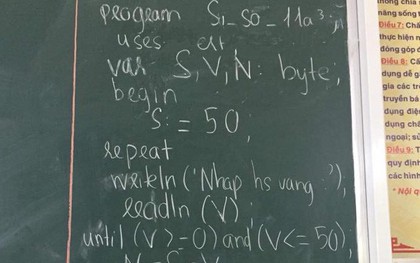 program Si_so_11a3;
uses crt
var S, V, N: byte;
begin
S:= 50;
repeat
writeln('Nhap hs vang '),
readln (V)
until (V >=0) and (V<= 50),
Điều 7: Chấ
thực hiện n
đóng góp c
Điều 8: Cấ
dụng để g
gia các tr
truyền bá
dụng điện
dụng chấ
ngoại; sử
Điều 9: T
quy định
các hình
* Nội q